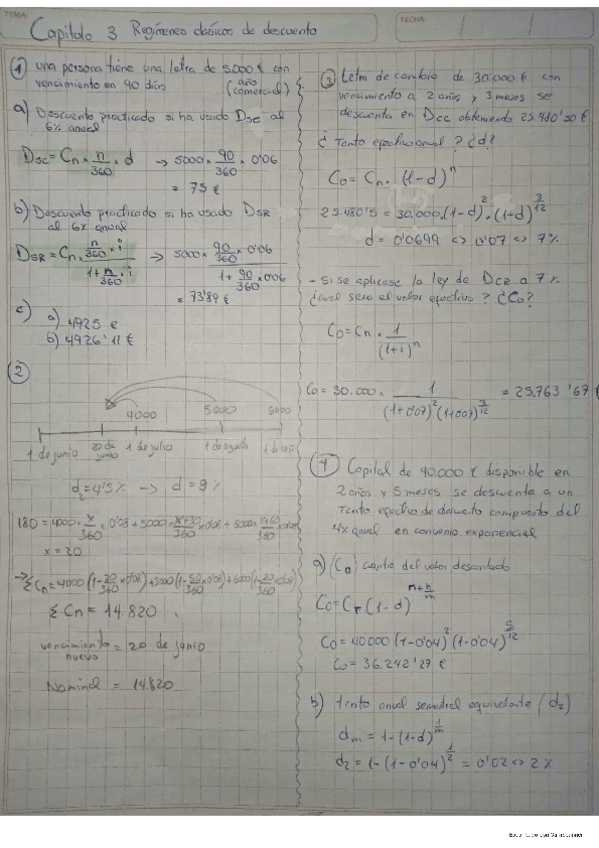 TEMA:
FECHA:
Capitulo 3 Regímenes clásicos de descuento
1 una persona tiene una letra de 5000 € con
vencimiento en 90 días (año comercial)
a) Descuento practicado si ha usado Dsc al
6% anual
Dsc = Cn × n/360 × d → 5000 × 90/360 × 0'06
= 75 €
b) Descuento practicado si ha usado DSR
al 6% anual
DSR = Cn × n/360 · i / 1 + n/360 · i → 5000 × 90/360 × 0'06 / 1 + 90/360 × 0'06
= 73'89 €
c)
a) 4925 €
b) 4926'11 €
2
4000 5000 5000
1 de junio 20 de junio 1 de julio 1 de agosto
d2 = 4'5% → d = 9%
180 = 4000 × x/360 × 0'08 + 5000 × x+30/360 × 0'08 +
x = 20
Σ Cn = 14.820
vencimiento nuevo = 20 de junio
Nominal = 14.820
3 Letra de cambio de 30.000 € con
vencimiento a 2 años y 3 meses se
descuenta en Dcc obteniendo 25.480'50 €
¿Tanto efectivo anual? ¿d?
C0 = Cn · (1-d)^n
25.480'5 = 30.000 · (1-d)^2 · (1-d)^3/12
d = 0'0699 <> 0'07 <> 7%
- Si se aplicase la ley de DCR a 7%
¿cual sera el valor efectivo? ¿C0?
C0 = Cn · 1/(1+i)^n
C0 = 30.000 · 1/(1+0'07)^2 (1+0'07)^3/12 = 25.763'67
4 Capital de 40.000 € disponible en
2 años y 5 meses se descuenta a un
tanto efectivo de descuento compuesto del
4% anual en convenio exponencial
a) (C0) cuantia del valor descontado
C0 = Cn (1-d)^n+n/m
C0 = 40000 (1-0'04)^2 (1-0'04)^5/12
C0 = 36.242'27 €
b) tanto anual semestral equivalente (d2)
dm = 1-(1-d)^1/m
d2 = 1-(1-0'04)^1/2 = 0'02 <> 2%